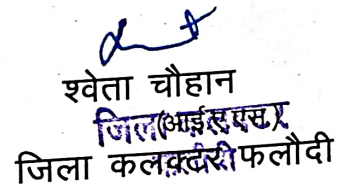 श्वेता चौहान
(आई.ए.एस.)
जिला कलक्टर फलौदी